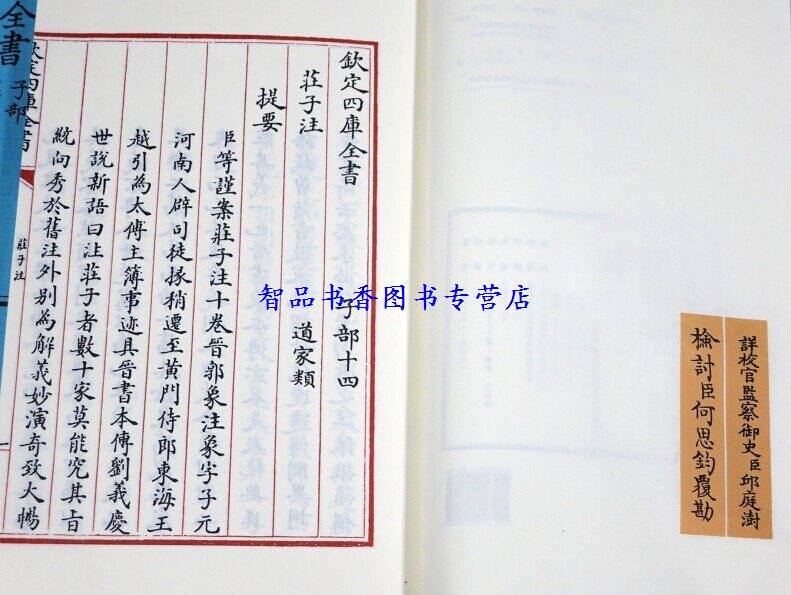 詳校官監察御史臣邱庭澍
檢討臣何思鈞覆勘
欽定四庫全書 子部十四
莊子注 道家類
提要
臣等謹案莊子注十卷晉郭象注象字子元
河南人辟司徒掾稍遷至黃門侍郎東海王
越引為太傅主簿事迹具晉書本傳劉義慶
世說新語曰注莊子者數十家莫能究其旨
統向秀於舊注外別為解義妙演奇致大暢
欽定四庫全書
莊子注
一
全書 子部
智品书香图书专营店